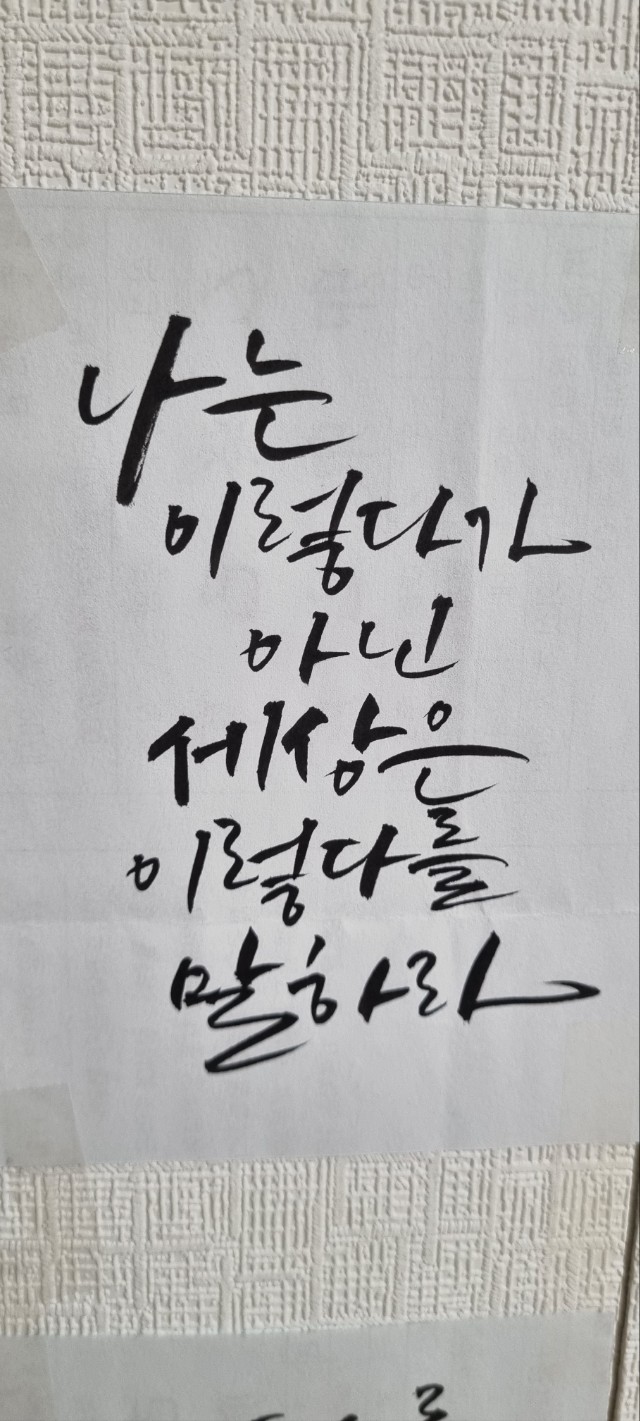 나는
이렇다가
아닌
세상은
이렇다를
말하라